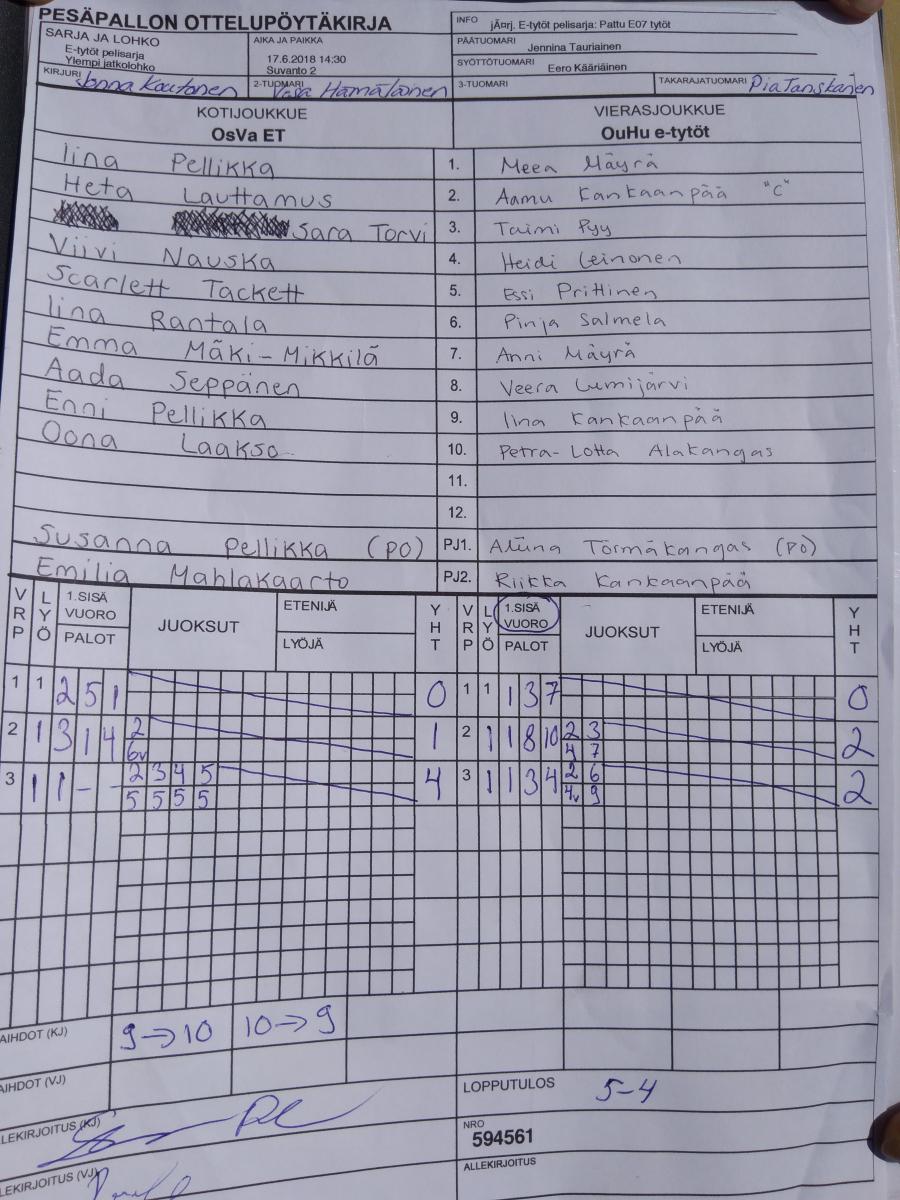 PESÄPALLON OTTELUPÖYTÄKIRJA
INFO jÃ¤rj. E-tytöt pelisarja: Pattu E07 tytöt
SARJA JA LOHKO
E-tytöt pelisarja
Ylempi jatkolohko
AIKA JA PAIKKA
17.6.2018 14:30
Suvanto 2
PÄÄTUOMARI Jennina Tauriainen
SYÖTTÖTUOMARI Eero Kääriäinen
KIRJURI Jonna Kautonen 2-TUOMARI Hämäläinen 3-TUOMARI TAKARAJATUOMARI Pia Tanskanen
KOTIJOUKKUE VIERASJOUKKUE
OsVa ET OuHu e-tytöt
Iina Pellikka 1. Meea Mäyrä
Heta Lauttamus 2. Aamu Kankaanpää "C"
Sara Torvi 3. Taimi Pyy
Viivi Nauska 4. Heidi Leinonen
Scarlett Tackett 5. Essi Prittinen
Iina Rantala 6. Pinja Salmela
Emma Mäki-Mikkilä 7. Anni Mäyrä
Aada Seppänen 8. Veera Lumijärvi
Enni Pellikka 9. Iina Kankaanpää
Oona Laakso 10. Petra-Lotta Alakangas
11.
12.
Susanna Pellikka (PO) PJ1. Törmäkangas (PO)
Emilia Mahlakaarto PJ2. Riikka Kankaanpää
VRP LYÖ 1.SISÄ VUORO PALOT JUOKSUT ETENIJÄ LYÖJÄ YHT VRP LYÖ 1.SISÄ VUORO PALOT JUOKSUT ETENIJÄ LYÖJÄ YHT
1 1 2 5 1 0 1 1 1 3 7 0
2 1 3 1 4 2 1 2 1 1 8 10 2 3 2
6v 4 7
3 1 1 - - 2 3 4 5 4 3 1 1 3 4 2 6 2
5 5 5 5 4v 9
AIHDOT (KJ) 9→10 10→9
AIHDOT (VJ)
LOPPUTULOS 5-4
LEKIRJOITUS (KJ)
NRO
594561
LEKIRJOITUS (VJ)
ALLEKIRJOITUS